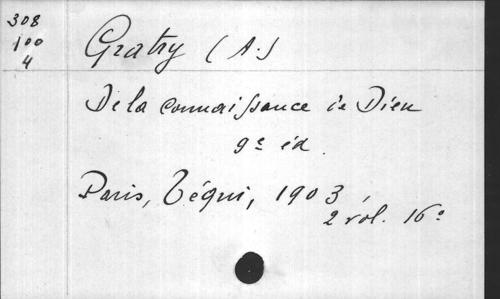 308
100
4
Gratry (A.)
De la connaissance de Dieu
9e éd.
Paris, Téqui, 1903,
2 vol. 16°